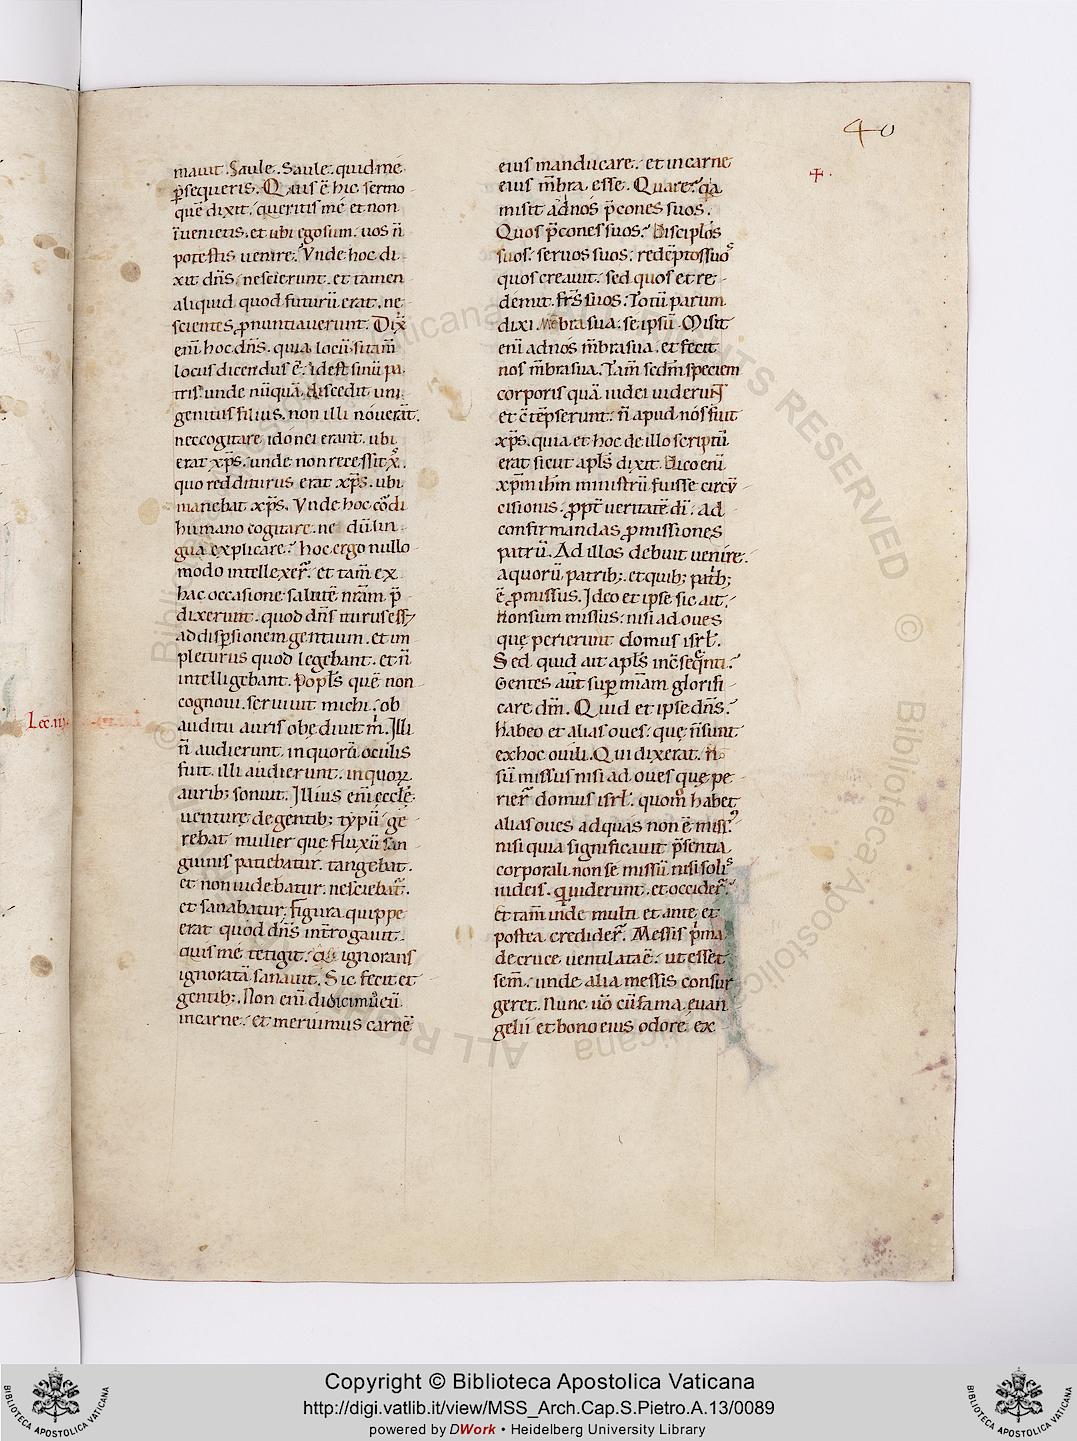 40
mauit. Saule. Saule. quid me
p̱sequeris. Quis ē hic sermo
quē dixit. queritis mé et non
īuenietis. et ubi ego sum. uos n̄
potestis uenire? Vnde hoc di
xit dn̄s. nescierunt. et tamen
aliquid quod futurū erat. ne
scientes ꝓnuntiauerunt. Dix̄
eni̅ hoc dn̄s. quia locū
locus dicendus ē. idest sinū pa
tris. unde nūquā discedit uni
genitus filius. non illi nouerāt.
nec cogitare idonei erant. ubi
erat xp̄s. unde non recessit
quo redditurus erat xp̄s. ubi
manebat xp̄s. Vnde hoc cōdi
humano cogitare. ne dū lin
gua explicare? hoc ergo nullo
modo intellexer̄. et tam̄ ex
hac occasione salutē nrām p̄
dixerunt. quod dn̄s iturus esset
ad disp̱sionem gentium. et im
pleturus quod legebant. et n̄
intelligebant. Popl̄s quē non
cognoui. seruiuit michi. ob
auditu auris obędiuit m̄. Illi
n̄ audierunt. in quorū oculis
fuit. illi audierunt. in quoꝝ
aurib; sonuit. Illius eni̅ ecclē
uenturę de gentib; typū ge
rebat mulier que fluxū san
guinis patiebatur. tangebat.
et non uidebatur. nesciebat̄.
et sanabatur. figura quippe
erat quod dn̄s int̄rogauit.
quis mé tetigit. ignorans
ignoratā sanauit. Sic fecit et
gentib;. Non eni̅ didicimus eū
in carne. et meruimus carnē
eius manducare. et in carne
eius m̄bra esse. Quare? q̄a
misit ad nos p̄cones suos.
Quos p̄cones suos? Disciplōs
suos. seruos suos. redēptos suos
quos creauit. sed quos et re
demit. fr̄s suos. Totū parum
dixi. mēbra sua. se ipsū. Misit
eni̅ ad nos m̄bra sua. et fecit
nos m̄bra sua. Tam̄ sedm̄ speciem
corporis quā iudei uiderunt
et cōtēpserunt. n̄ apud nos fuit
xp̄s. quia et hoc de illo scriptū
erat sicut apl̄s dixit. Dico eni̅
xp̄m ih̄m ministrū fuisse circū
cisionis. ꝓpt̄ ueritatē dī. ad
confirmandas ꝓmissiones
patrū. Ad illos debuit uenire.
a quorū patrib;. et quib; patrib;
ē ꝓmissus. Ideo et ipse sic ait.
Non sum missus. nisi ad oues
quę perierunt domus isrl̄.
Sed quid ait apl̄s in
Gentes aūt sup̱ mīam glorifi
care dm̄. Quid et ipse dn̄s?
habeo et alias oues. quę n̄ sunt
ex hoc ouili. Qui dixerat. n̄
sū missus nisi ad oues quę pe
rier̄ domus isrl̄. quom̊ habet
alias oues ad quas non ē miss;
nisi quia significauit p̄sentia
corporali non se missū nisi solis
iudeis. qui uiderunt. et occider̄.
Et tam̄ inde multi et ante et
postea credider̄. Messis p̄ma
de cruce uentilata ē. ut esset
sem̄. unde alia messis consur
geret. Nunc u̅o cū fama euan
gelii et bono eius odore. ex
Lec̄. iij.
Copyright © Biblioteca Apostolica Vaticana
http://digi.vatlib.it/view/MSS_Arch.Cap.S.Pietro.A.13/0089
powered by DWork • Heidelberg University Library
BIBLIOTECA APOSTOLICA VATICANA
BIBLIOTECA APOSTOLICA VATICANA
© Biblioteca Apostolica Vaticana ALL RIGHTS RESERVED © Biblioteca Apostolica Vaticana ALL RIGHTS RESERVED